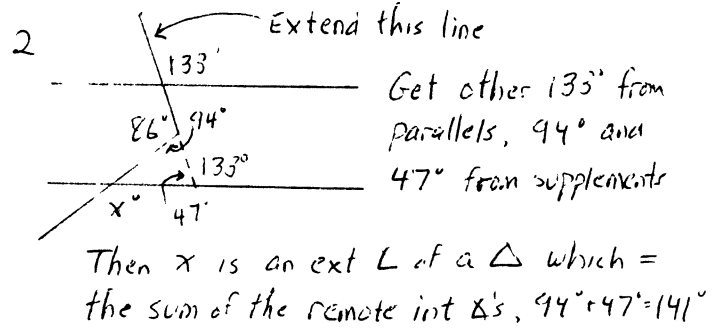 2
Extend this line
133°
Get other 133° from
86° 94°
parallels, 94° and
133°
47° from supplements
x° 47°
Then x is an ext ∠ of a △ which =
the sum of the remote int ∡'s, 94°+47°=141°